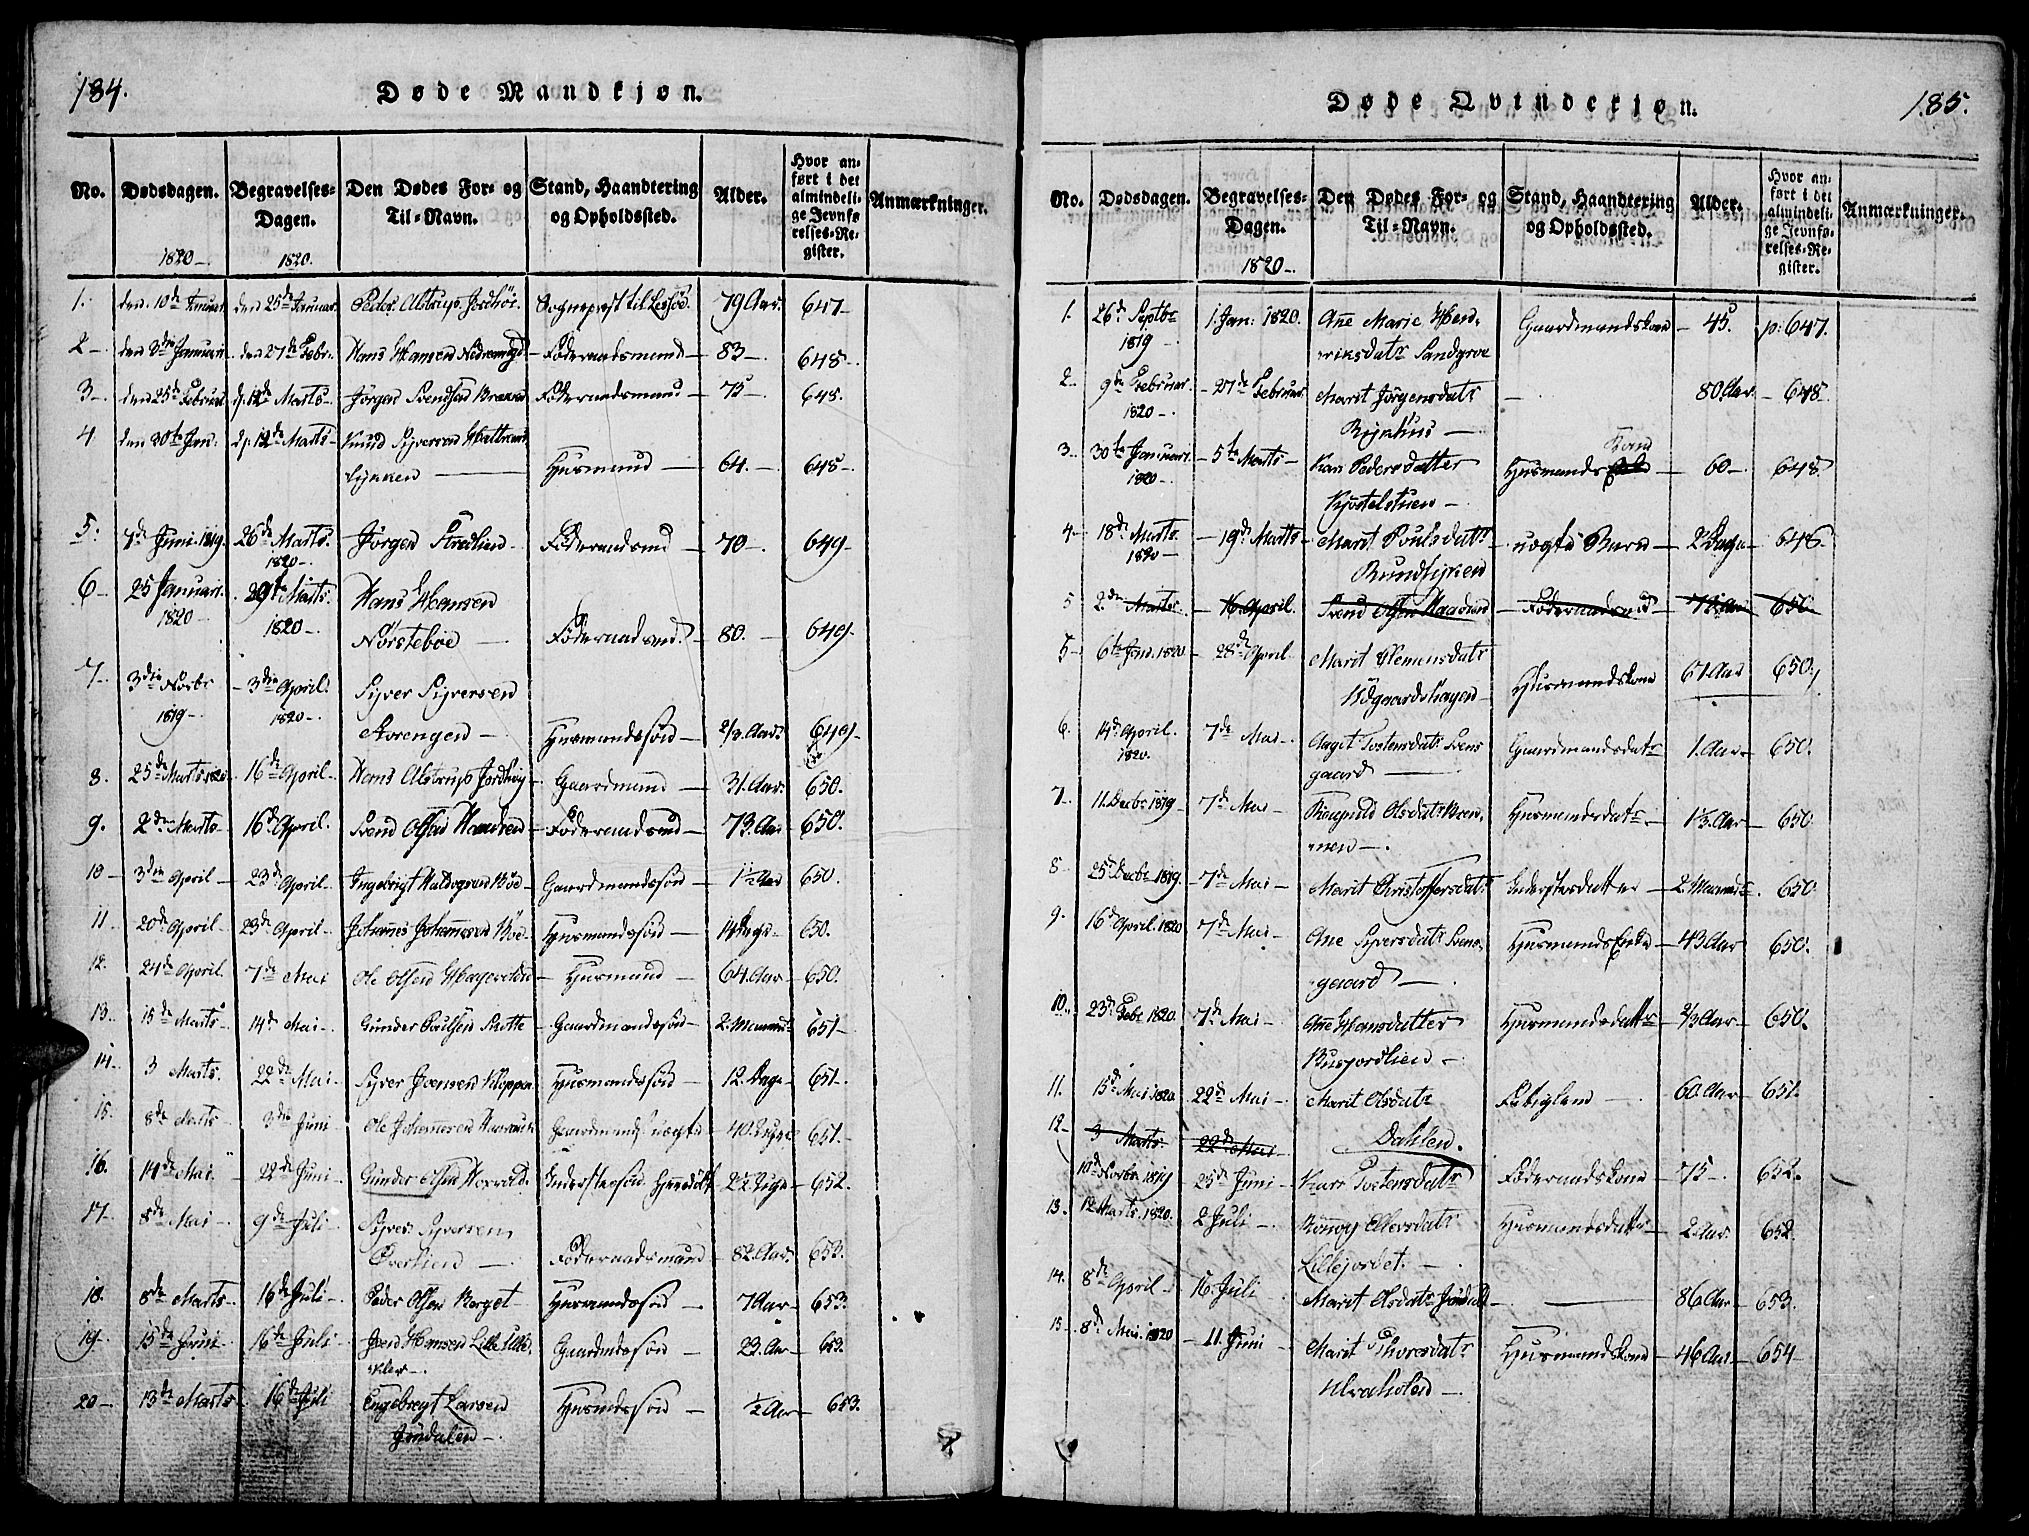 184.
Døde Mandkjøn.
No. Dødsdagen. Begravelses-Dagen. Den Dødes For- og Til-Navn. Stand, Haandtering og Opholdssted. Alder. Hvor anført i det almindelige Jevnførelses-Register. Anmærkninger.
1820 1820.
1. den 10de Januar. den 25de Januar. Peder Alstrup Sogneprest til Lessøe. 79 Aar. 647
2. den 3die Januarii. den 27de Febr. Hans Hansen Foderaadsmand 83 648
3. den 25de Februar d. 12de Marts Jørgen Svendsen Foderaadsmand 75 648.
4 den 30te Jan. d. 12de Marts Knud Syversen
lykken Husmand 64. 648
5. 7de Juni 1819. 26de Marts. 1820 Jørgen Foderaadsmd 70 649
6 25 Januari. 1820 29de Marts. 1820 Hans Hansen
Nørsteboe Foderaadsmd. 80. 649
7. 3die Novbr 1819 3die April. 1820 Syver Syversen
Storengen Husmandssøn 2/3. Aar. 649
8. 25de Marts 1820 16de April Hans Alstrup Gaardmand 31. Aar. 650.
9. 2den Marts 16de April. Svend Olsen Haandren Foderaadsmd 73. Aar 650.
10 3die April 23de April Ingebrigt Gaardmandssøn 1 1/2 Aar 650.
11. 20de April 23de April Johannes Johannesen Böe Husmandssøn 14 Dage 650.
12. 24de April. 7de Mai Ole Olsen Husmand 64. Aar 650.
13. 15de Marts 14de Mai Gunder Poulsen Gaardmandssøn 2. Maaned 651
14. 3 Marts. 22de Mai Syver Joensen Kloppen Husmandssøn 12. Dage 651.
15. 8de Marts 3die Juni Ole Johannesen Gaardmand uægte 40. Uger 651
16. 14de Mai. 22de Juni Gunder Olsen Inderstessøn 22 Uge 652.
17. 8de Mai 9de Juli Syver Syversen
Foderaadsmand 82. Aar. 653.
18. 8de Marts 16de Juli Peder Olsen Berget Husmandssøn 7 Aar 653.
19. 15de Juni 16de Juli Joen Hansen Lille
Gaardmdssøn 23. Aar 653.
20 13de Marts 16de Juli Engebregt Larsen
Jøndalen Husmdssøn 1/2 Aar 653.
185.
Døde Qvindekjøn.
No. Dødsdagen. Begravelses-Dagen. Den Dødes For- og Til-Navn. Stand, Haandtering og Opholdssted. Alder. Hvor anført i det almindelige Jevnførelses-Register. Anmærkninger.
1820
1. 26de Septbr 1819 1. Jan: 1820. Ane Marie Hen-
riksdatr Sandgroe Gaardmandskone 45. p: 647.
2. 9de Februar. 1820 27de Februar Marit Jörgensdatr
80. Aar. 648
3. 30te Januari. 1820 5te Marts Kari Pedersdatter
Kjøstelstuen Husmands Kone 60 648
4 18de Marts 1820 19de Marts Marit Poulsdatr
Rundlykken uægte Barn 2 Dage 648
5 2den Marts. 16 April. Svend Olsen Haandren Foderaadsmd 73. Aar 650.
5 6te Jan. 1820 28de April Marit Clemensdatr
Husmandskone 67. Aar 650.
6. 14de April. 1820. 7de Mai Aaget Tostensdatr Svens-
gaard Gaardmandsdatr 1. Aar 650.
7. 11. Decbr 1819 7de Mai Rangnild Olsdatr Bren-
nen Husmandsdatr 1 1/3. Aar 650.
8 25de Decbr 1819. 7de Mai Marit Christoffersdatr Inderstesdatter 2. Maaneder 650.
9. 16de April. 1820 7de Mai Ane Syversdatr Svens-
gaard Husmands Enke 43 Aar 650.
10. 23de Febr. 1820. 7de Mai Ane Hansdatter
Rusjordlien Husmandsdattr 2/3 Aar 650.
11. 15de Mai 1820 22de Mai Marit Olsdatr
Dahlen. Fattiglem 60. Aar 651.
12 3 Marts 22de Mai
10de Novbr. 1819 25de Juni Kari Tostensdatr Foderaadskone 75 652.
13. 12 Marts. 1820. 2 Juli Rönnoy Ellersdatr
Lillejordet. Husmandsdattr 2 Aar. 652.
14. 8de April 16. Juli Marit Olsdatr 86 Aar 653.
15 8de Mai. 1820 11. Juni Marit Thoresdatr
Husmandskone 46 Aar 654